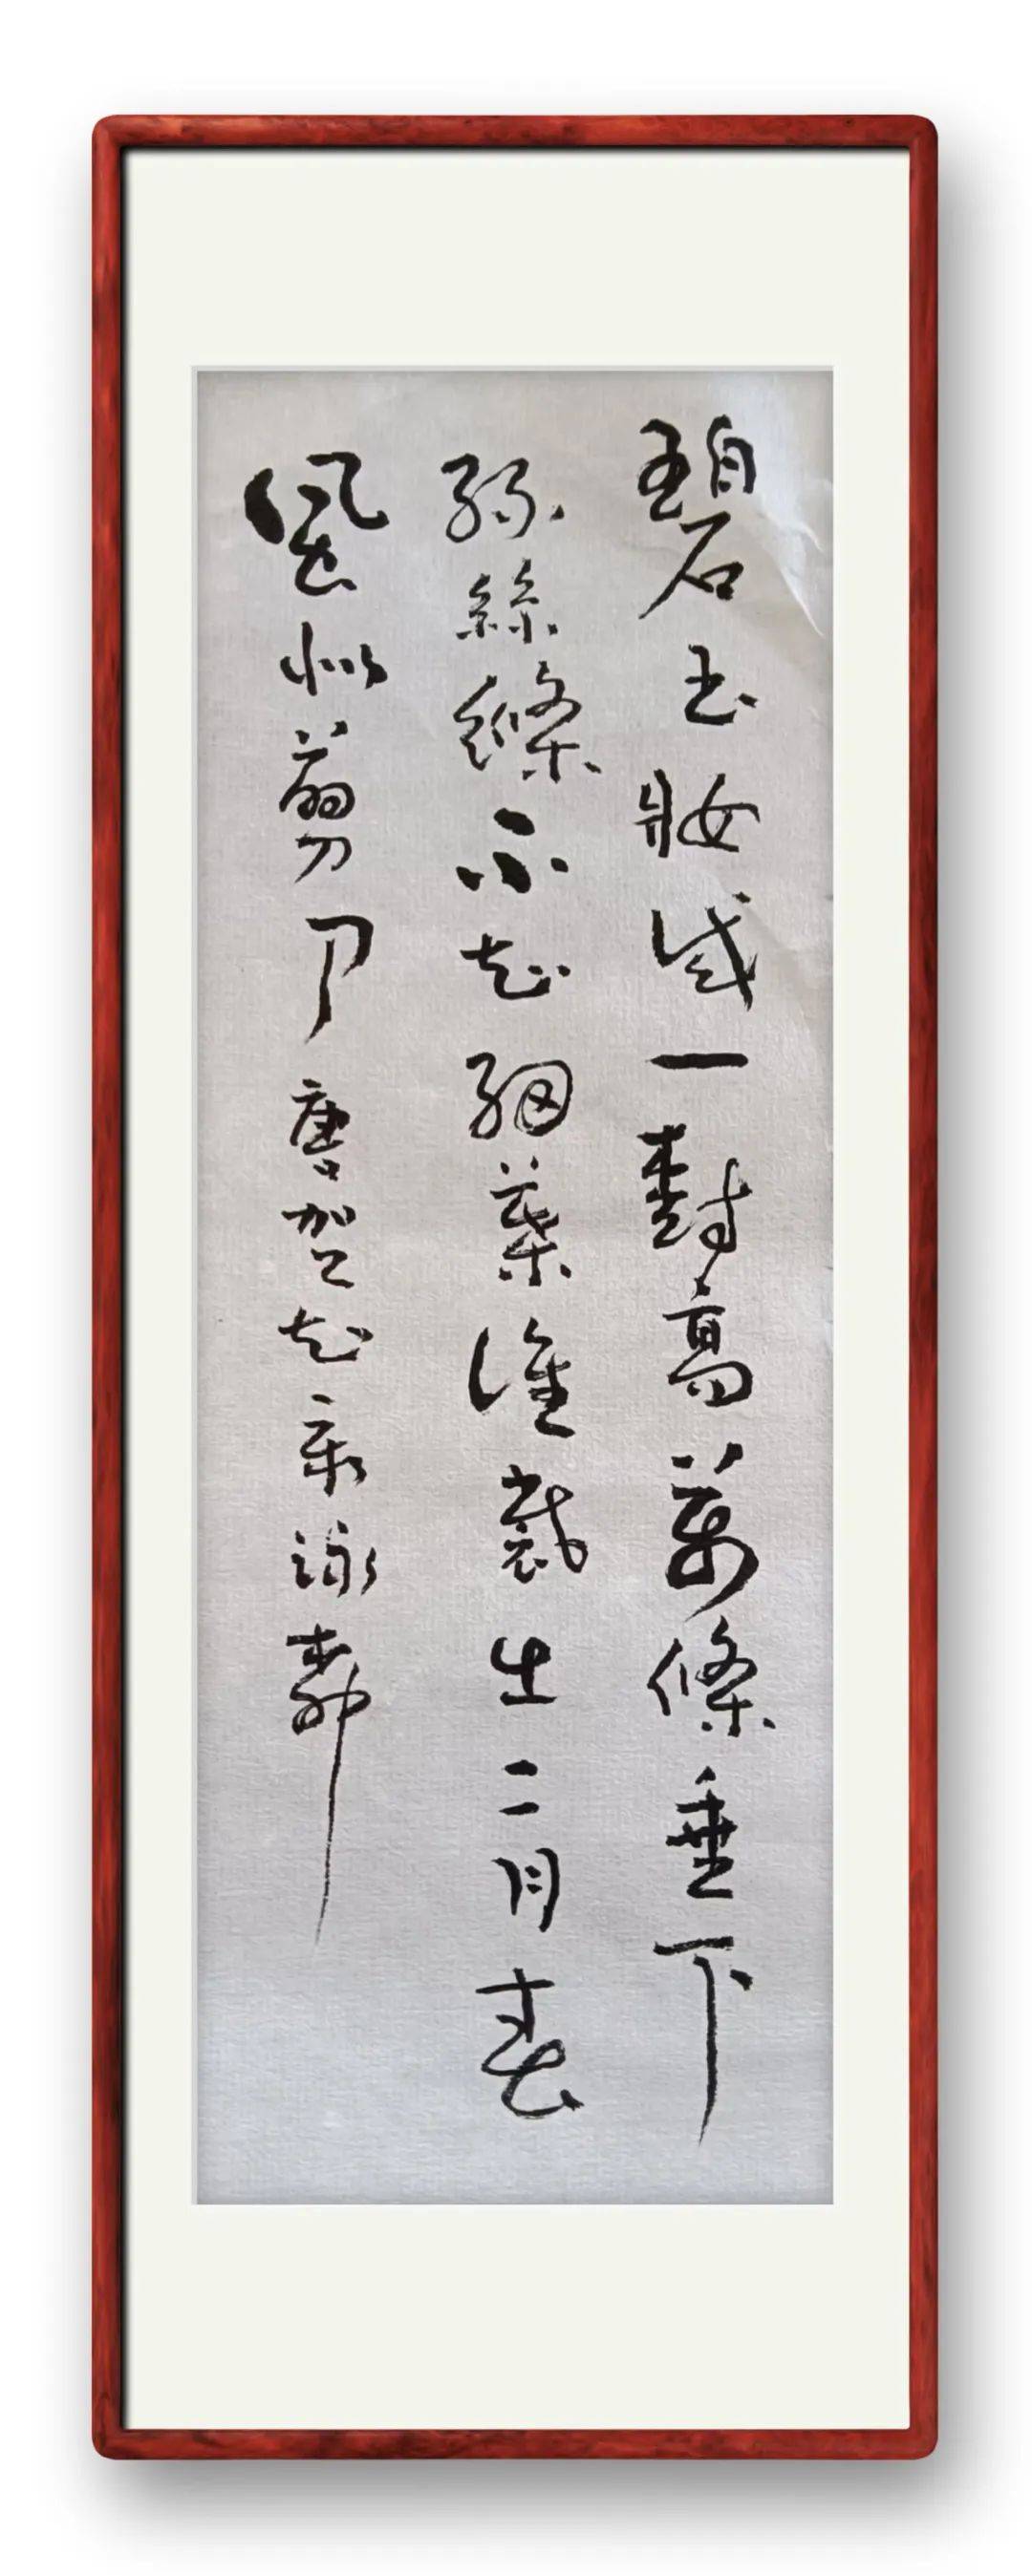 碧玉妝成一樹高萬條垂下
綠絲縧不知細葉誰裁出二月春
風似剪刀 唐賀知章詠柳